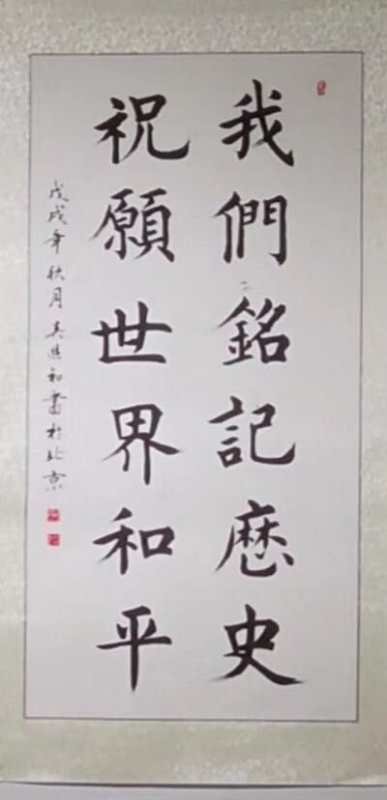 我們銘記歷史
祝願世界和平
戊戌年秋月吴書於北京